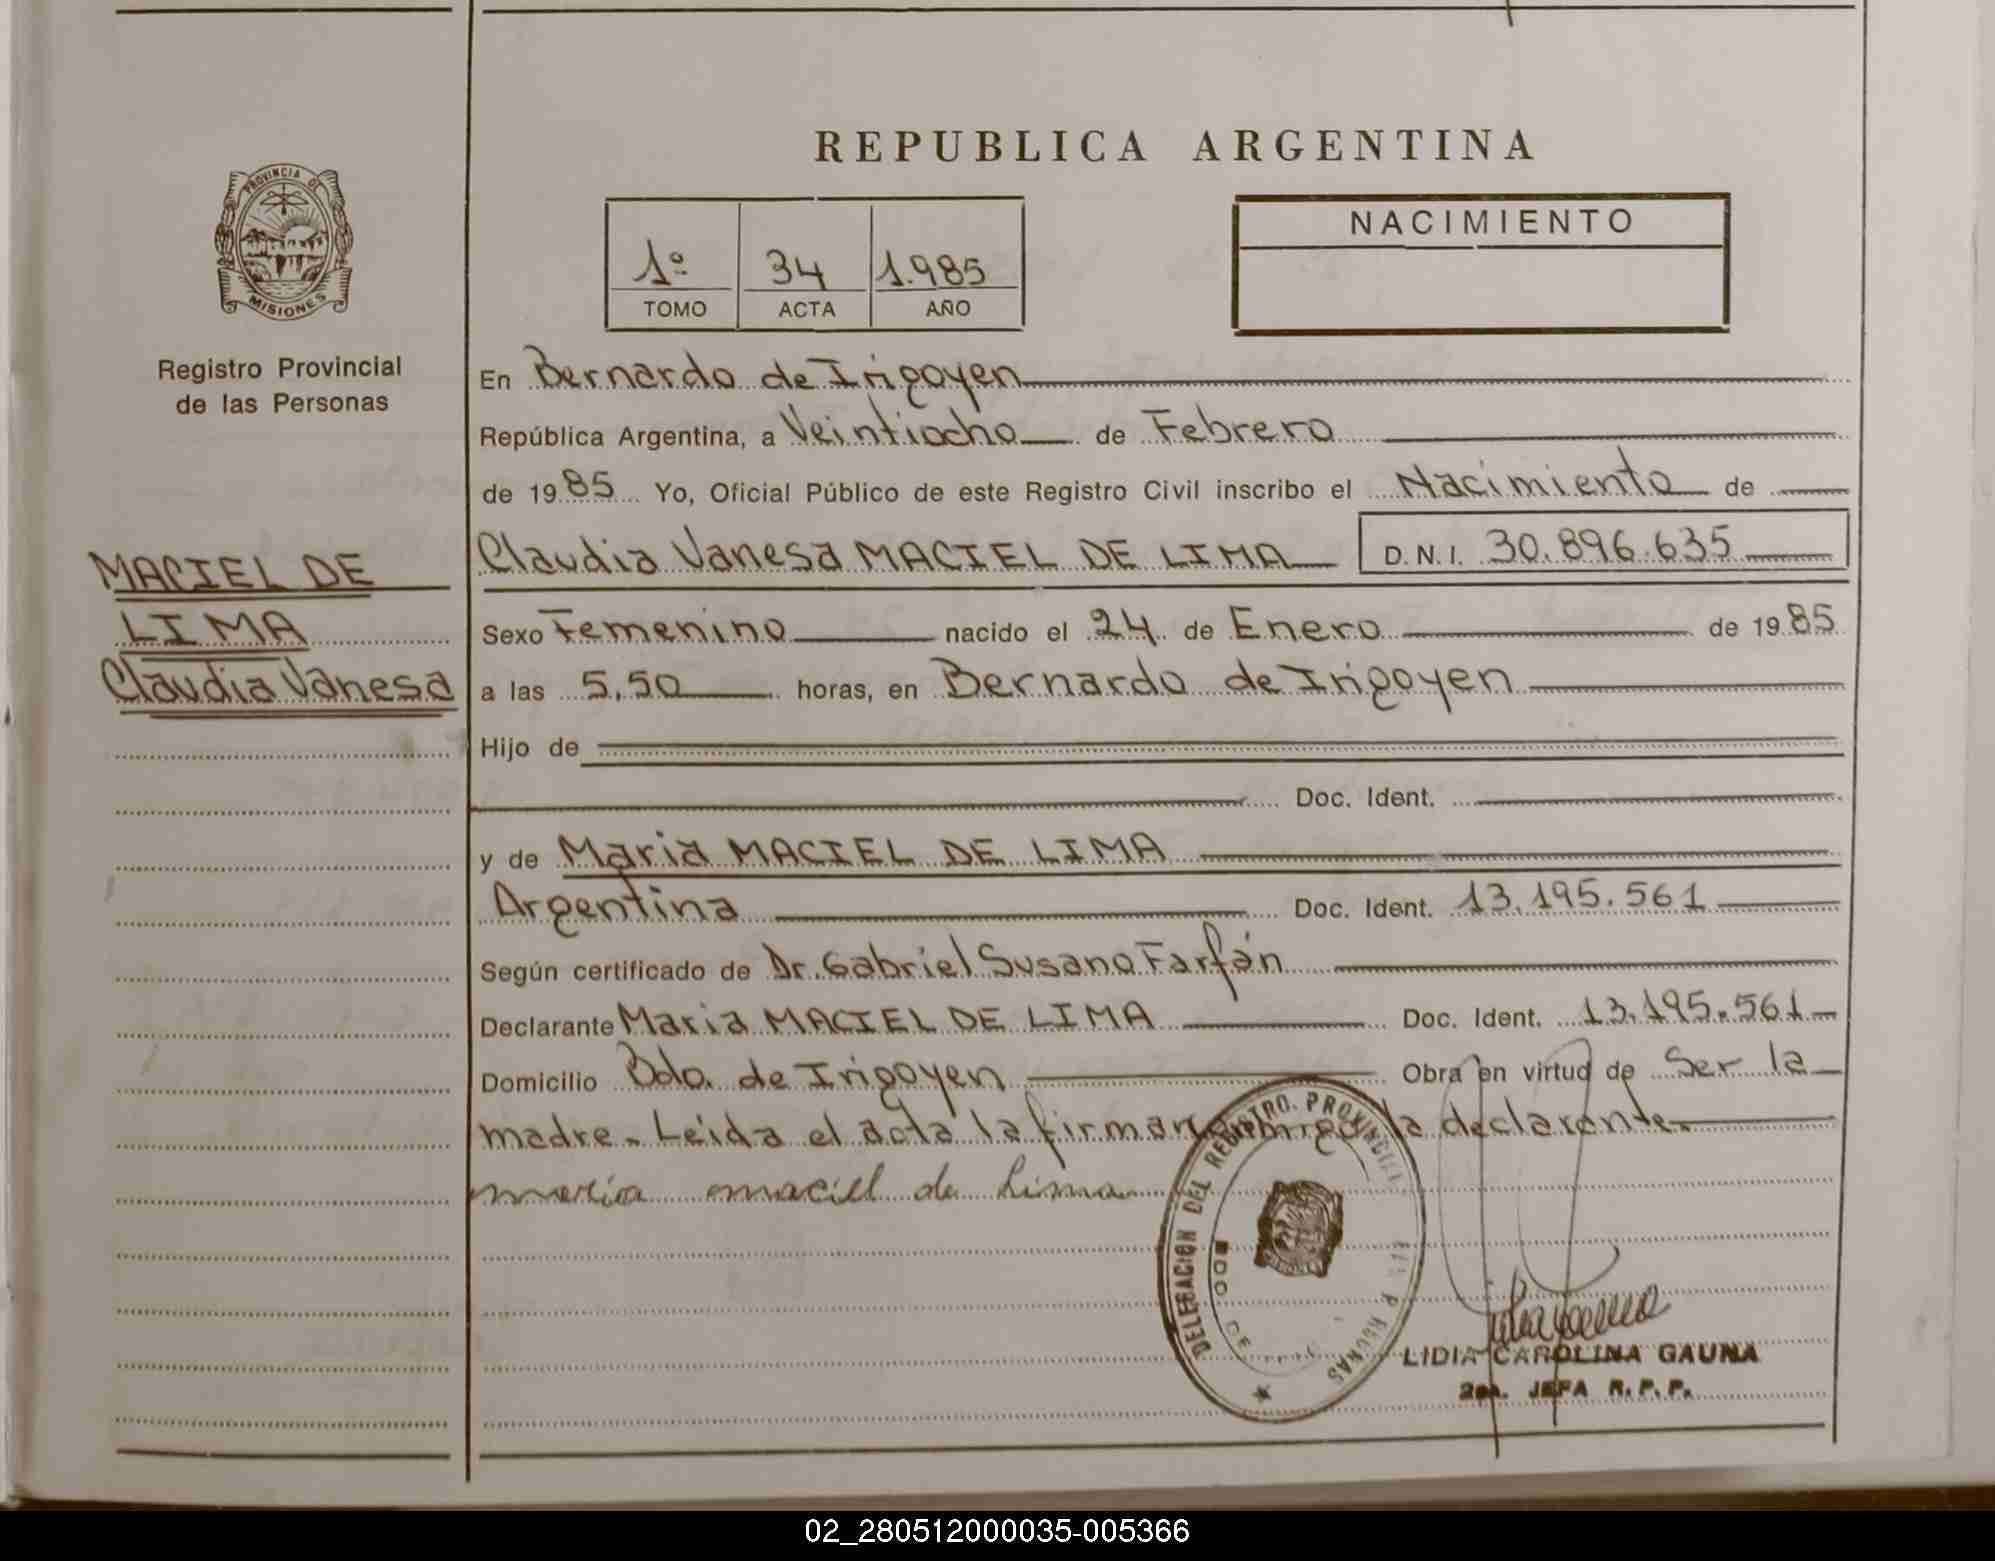 REPUBLICA ARGENTINA
PROVINCIA DE
MISIONES
Registro Provincial
de las Personas
NACIMIENTO
1º 34 1.985
TOMO ACTA AÑO
En Bernardo de Irigoyen
República Argentina, a Veintiocho de Febrero
de 1985 Yo, Oficial Público de este Registro Civil inscribo el Nacimiento de
Claudia Vanesa MACIEL DE LIMA D.N.I. 30.896.635
MACIEL DE
LIMA
Claudia Vanesa
Sexo Femenino nacido el 24 de Enero de 1985
a las 5,50 horas, en Bernardo de Irigoyen
Hijo de
Doc. Ident.
y de Maria MACIEL DE LIMA
Argentina Doc. Ident. 13.195.561
Según certificado de Dr. Gabriel Susano Farfán
Declarante Maria MACIEL DE LIMA Doc. Ident. 13.195.561
Domicilio Bdo. de Irigoyen Obra en virtud de Ser la
madre. Leída el acta la firman conmigo la declarante.
maria maciel de Lima
DELEGACION DEL REGISTRO PROVINCIAL
BDO DE
LIDIA CAROLINA GAUNA
2da. JEFA R.P.P.
02_280512000035-005366